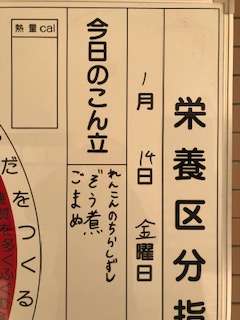 栄養区分指
1月14日金曜日
今日のこん立
れんこんのちらしずし
ぞう煮
ごまめ
熱量cal
だをつくる
質を多くふく